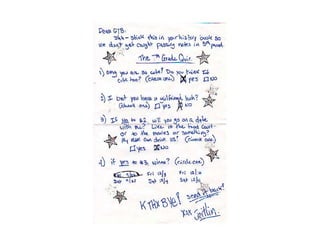 Dear OTB:
Shh - Stick this in your history book so
we don't get caught passing notes in 3rd period.
The 7th Grade Quiz
1) omg you are so cute! Do you think I'd
cute too? (check one) yes no
2) I bet you have a girlfriend huh?
(check one) yes no
3) If no to #2 will you go on a date
with me? Like to the food court
or to the movies or something?
My mom can drive us! (check one)
yes no
4) if yes to #3, when? (circle one)
Fri Fri Fri
Sat Sat Sat
KTHX BYE!
send it back!
xox
Caitlin